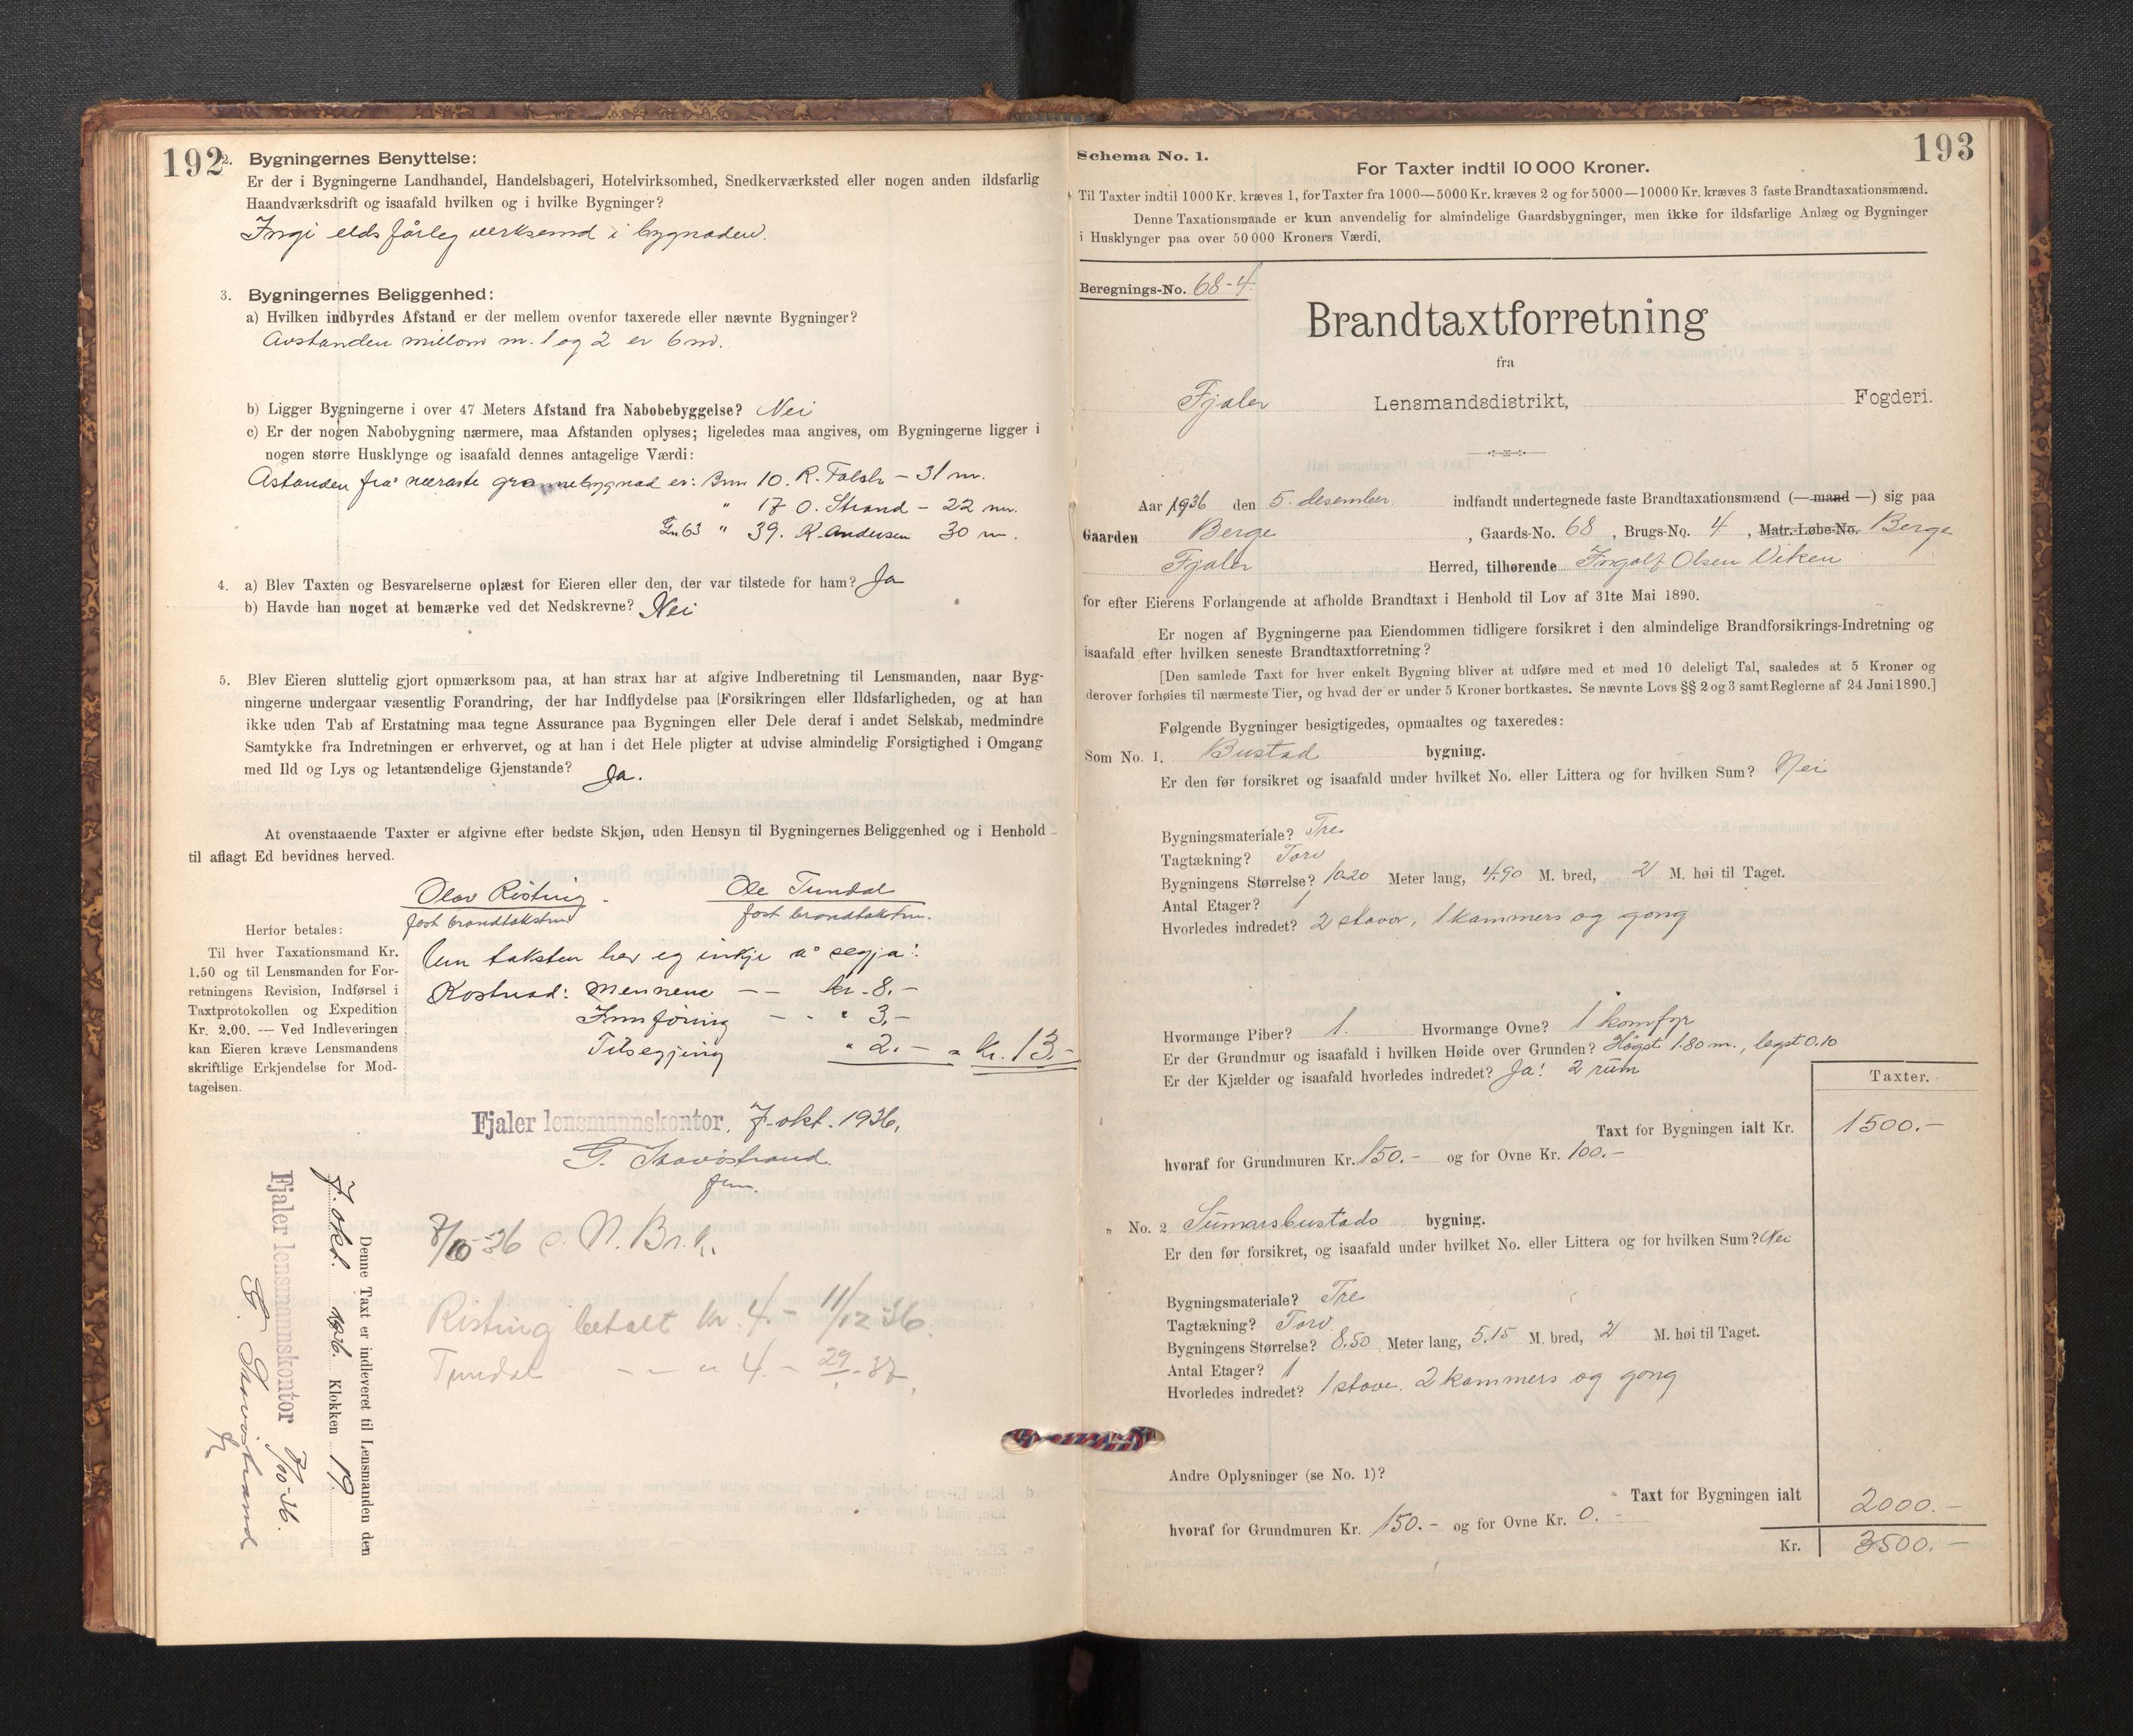 192
2. Bygningernes Benyttelse:
Er der i Bygningerne Landhandel, Handelsbageri, Hotelvirksomhed, Snedkerværksted eller nogen anden ildsfarlig
Haandværksdrift og isaafald hvilken og i hvilke Bygninger?
Ingi eldsfårleg verksemd i bygnaden.
3. Bygningernes Beliggenhed:
a) Hvilken indbyrdes Afstand er der mellem ovenfor taxerede eller nævnte Bygninger?
Avstanden millom nr. 1 og 2 er 6 m.
b) Ligger Bygningerne i over 47 Meters Afstand fra Nabobebyggelse? Nei
c) Er der nogen Nabobygning nærmere, maa Afstanden oplyses; ligeledes maa angives, om Bygningerne ligger i
nogen større Husklynge og isaafald dennes antagelige Værdi:
Astanden frå næraste grannebygnad er: Bnr 10. R. - 31 m.
" 17 O. Strand - 22 m.
Gn 63 " 39. K. Andersen 30 m.
4. a) Blev Taxten og Besvarelserne oplæst for Eieren eller den, der var tilstede for ham? Ja
b) Havde han noget at bemærke ved det Nedskrevne? Nei
5. Blev Eieren sluttelig gjort opmærksom paa, at han strax har at afgive Indberetning til Lensmanden, naar Byg-
ningerne undergaar væsentlig Forandring, der har Indflydelse paa Forsikringen eller Ildsfarligheden, og at han
ikke uden Tab af Erstatning maa tegne Assurance paa Bygningen eller Dele deraf i andet Selskab, medmindre
Samtykke fra Indretningen er erhvervet, og at han i det Hele pligter at udvise almindelig Forsigtighed i Omgang
med Ild og Lys og letantændelige Gjenstande? Ja.
At ovenstaaende Taxter er afgivne efter bedste Skjøn, uden Hensyn til Bygningernes Beliggenhed og i Henhold
til aflagt Ed bevidnes herved.
Olav Risting. Ole Tundal
fast brandtakstm. fast brandtakstm.
Herfor betales:
Til hver Taxationsmand Kr.
1.50 og til Lensmanden for For-
retningens Revision, Indførsel i
Taxtprotokollen og Expedition
Kr. 2.00. — Ved Indleveringen
kan Eieren kræve Lensmandens
skriftlige Erkjendelse for Mod-
tagelsen.
Um taksten hev eg inkje å segja!
Kostnad: Mennene - - kr. 8.-
Innføring - - " 3,-
Tilsegjing " 2.- = kr. 13.-
Fjaler lensmannskontor, 7. okt. 1936.
Denne Taxt er indleveret til Lensmanden den
7. okt. 1936. Klokken 19.
Fjaler lensmannskontor 7/10-36.
8/10-36 e. N. Br. k.
Risting betalt kr. 4.- 11/12-36.
Tundal - - " 4.-
193
Schema No. 1.
For Taxter indtil 10 000 Kroner.
Til Taxter indtil 1000 Kr. kræves 1, for Taxter fra 1000—5000 Kr. kræves 2 og for 5000—10000 Kr. kræves 3 faste Brandtaxationsmænd.
Denne Taxationsmaade er kun anvendelig for almindelige Gaardsbygninger, men ikke for ildsfarlige Anlæg og Bygninger
i Husklynger paa over 50 000 Kroners Værdi.
Beregnings-No. 68-4
Brandtaxtforretning
fra
Fjaler Lensmandsdistrikt, Fogderi.
Aar 1936 den 5. desember indfandt undertegnede faste Brandtaxationsmænd (— mand —) sig paa
Gaarden Berge, Gaards-No. 68, Brugs-No. 4, Matr.-Løbe-No. Berge
Fjaler Herred, tilhørende Ingolf Olsen Viken
for efter Eierens Forlangende at afholde Brandtaxt i Henhold til Lov af 31te Mai 1890.
Er nogen af Bygningerne paa Eiendommen tidligere forsikret i den almindelige Brandforsikrings-Indretning og
isaafald efter hvilken seneste Brandtaxtforretning?
[Den samlede Taxt for hver enkelt Bygning bliver at udføre med et med 10 deleligt Tal, saaledes at 5 Kroner og
derover forhøies til nærmeste Tier, og hvad der er under 5 Kroner bortkastes. Se nævnte Lovs §§ 2 og 3 samt Reglerne af 24 Juni 1890.]
Følgende Bygninger besigtigedes, opmaaltes og taxeredes:
Som No. 1. Bustad bygning.
Er den før forsikret og isaafald under hvilket No. eller Littera og for hvilken Sum? Nei
Bygningsmateriale? Tre
Tagtækning? Torv
Bygningens Størrelse? 10.20 Meter lang, 4.90 M. bred, 2 M. høi til Taget.
Antal Etager? 1
Hvorledes indredet? 2 stovor, 1 kammers og gong
Hvormange Piber? 1. Hvormange Ovne? 1 komfyr
Er der Grundmur og isaafald i hvilken Høide over Grunden? Høgst 1.80 m., legst 0.10
Er der Kjælder og isaafald hvorledes indredet? Ja! 2 rum
Taxter.
Taxt for Bygningen ialt Kr. 1500.-
hvoraf for Grundmuren Kr. 150.- og for Ovne Kr. 100.-
„ No. 2 Sumarsbustads bygning.
Er den før forsikret, og isaafald under hvilket No. eller Littera og for hvilken Sum? Nei
Bygningsmateriale? Tre
Tagtækning? Torv
Bygningens Størrelse? 8.50 Meter lang, 5.15 M. bred, 2 M. høi til Taget.
Antal Etager? 1
Hvorledes indredet? 1 stove. 2 kammers og gong
Andre Oplysninger (se No. 1)?
Taxt for Bygningen ialt 2000.-
hvoraf for Grundmuren Kr. 150.- og for Ovne Kr. 0.-
Kr. 3500.-